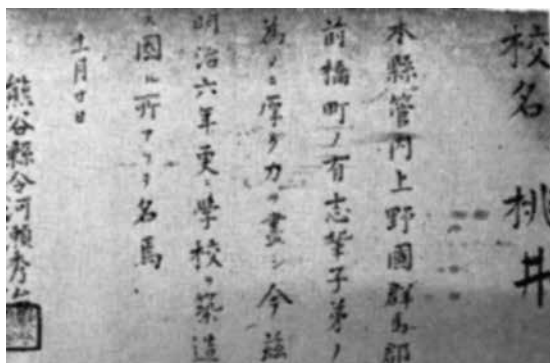 校名 桃井
本縣管内上野國群馬郡
前橋町ノ有志輩子弟ノ
為メニ厚ク力ヲ盡シ今茲
明治六年更ニ學校ヲ築造
因ニ所アツテ名焉
十一月廿日
熊谷縣令河瀬秀治